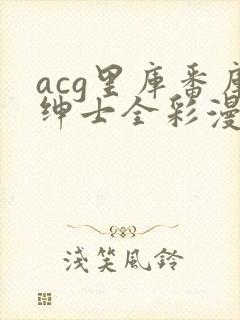 acg里库番库
绅士全彩漫
浅笑风铃